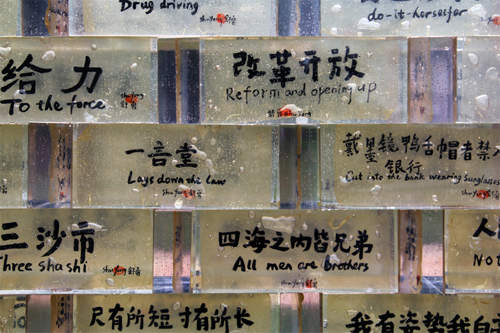 Drug driving
do-it-horsesfor
给力
To the force
改革开放
Reform and opening up
一言堂
Lays down the law
戴墨镜鸭舌帽者禁入
银行
Cut into the bank wearing Sunglasses
三沙市
Three shashi
四海之内皆兄弟
All men are brothers
人
Not
尺有所短寸有所长
我有姿势我的